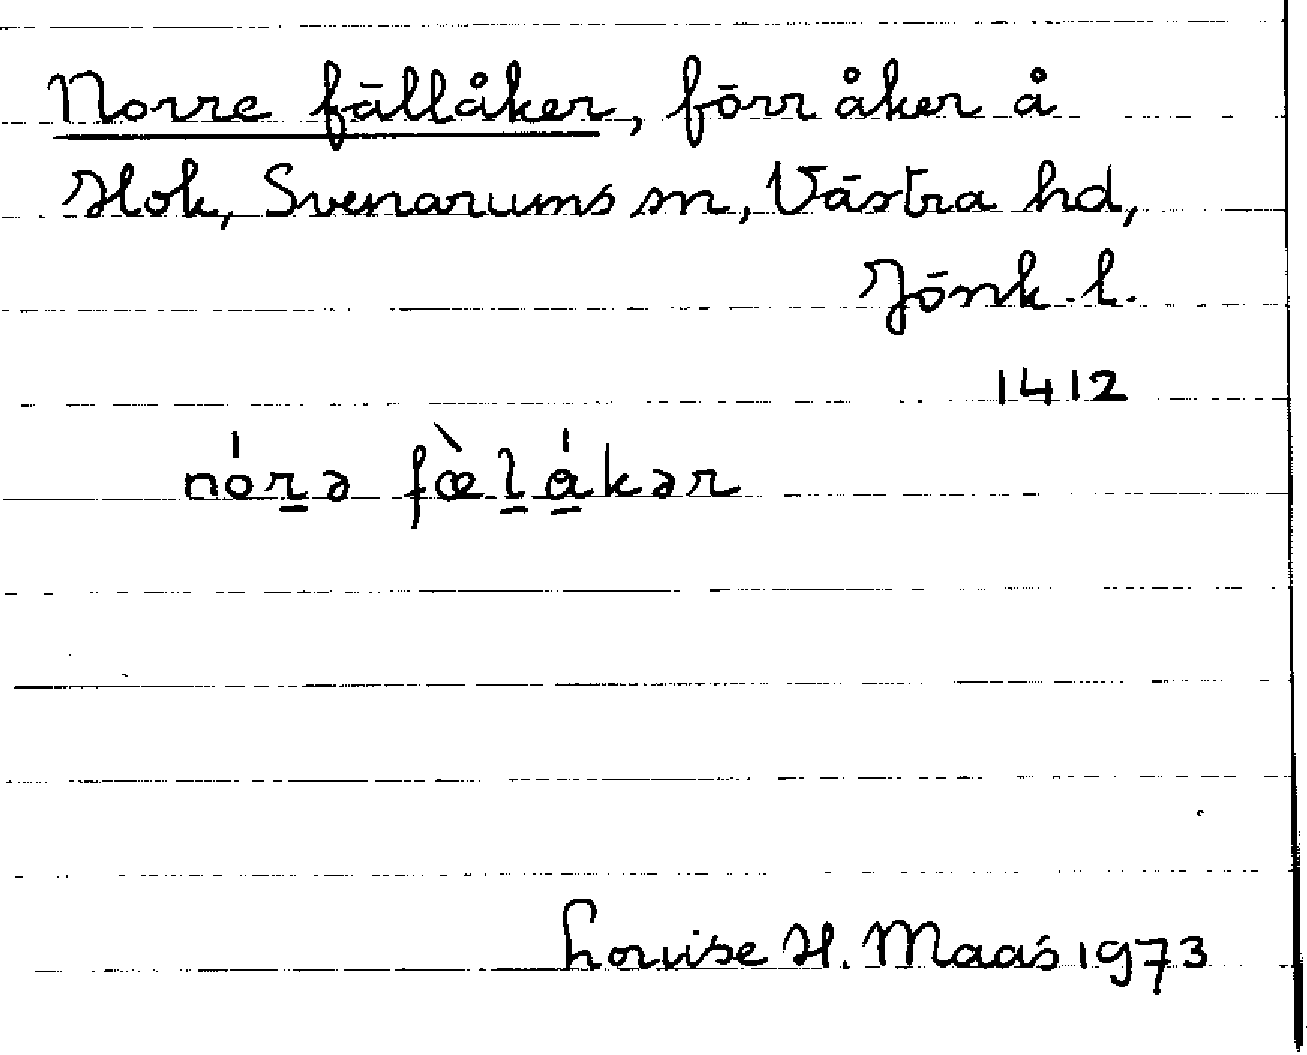 Norre fällåker, förr åker å
Hok, Svenarums sn, Västra hd,
Jönk. l.
1412
nórə fæ̀lákər
Louise H. Maas 1973